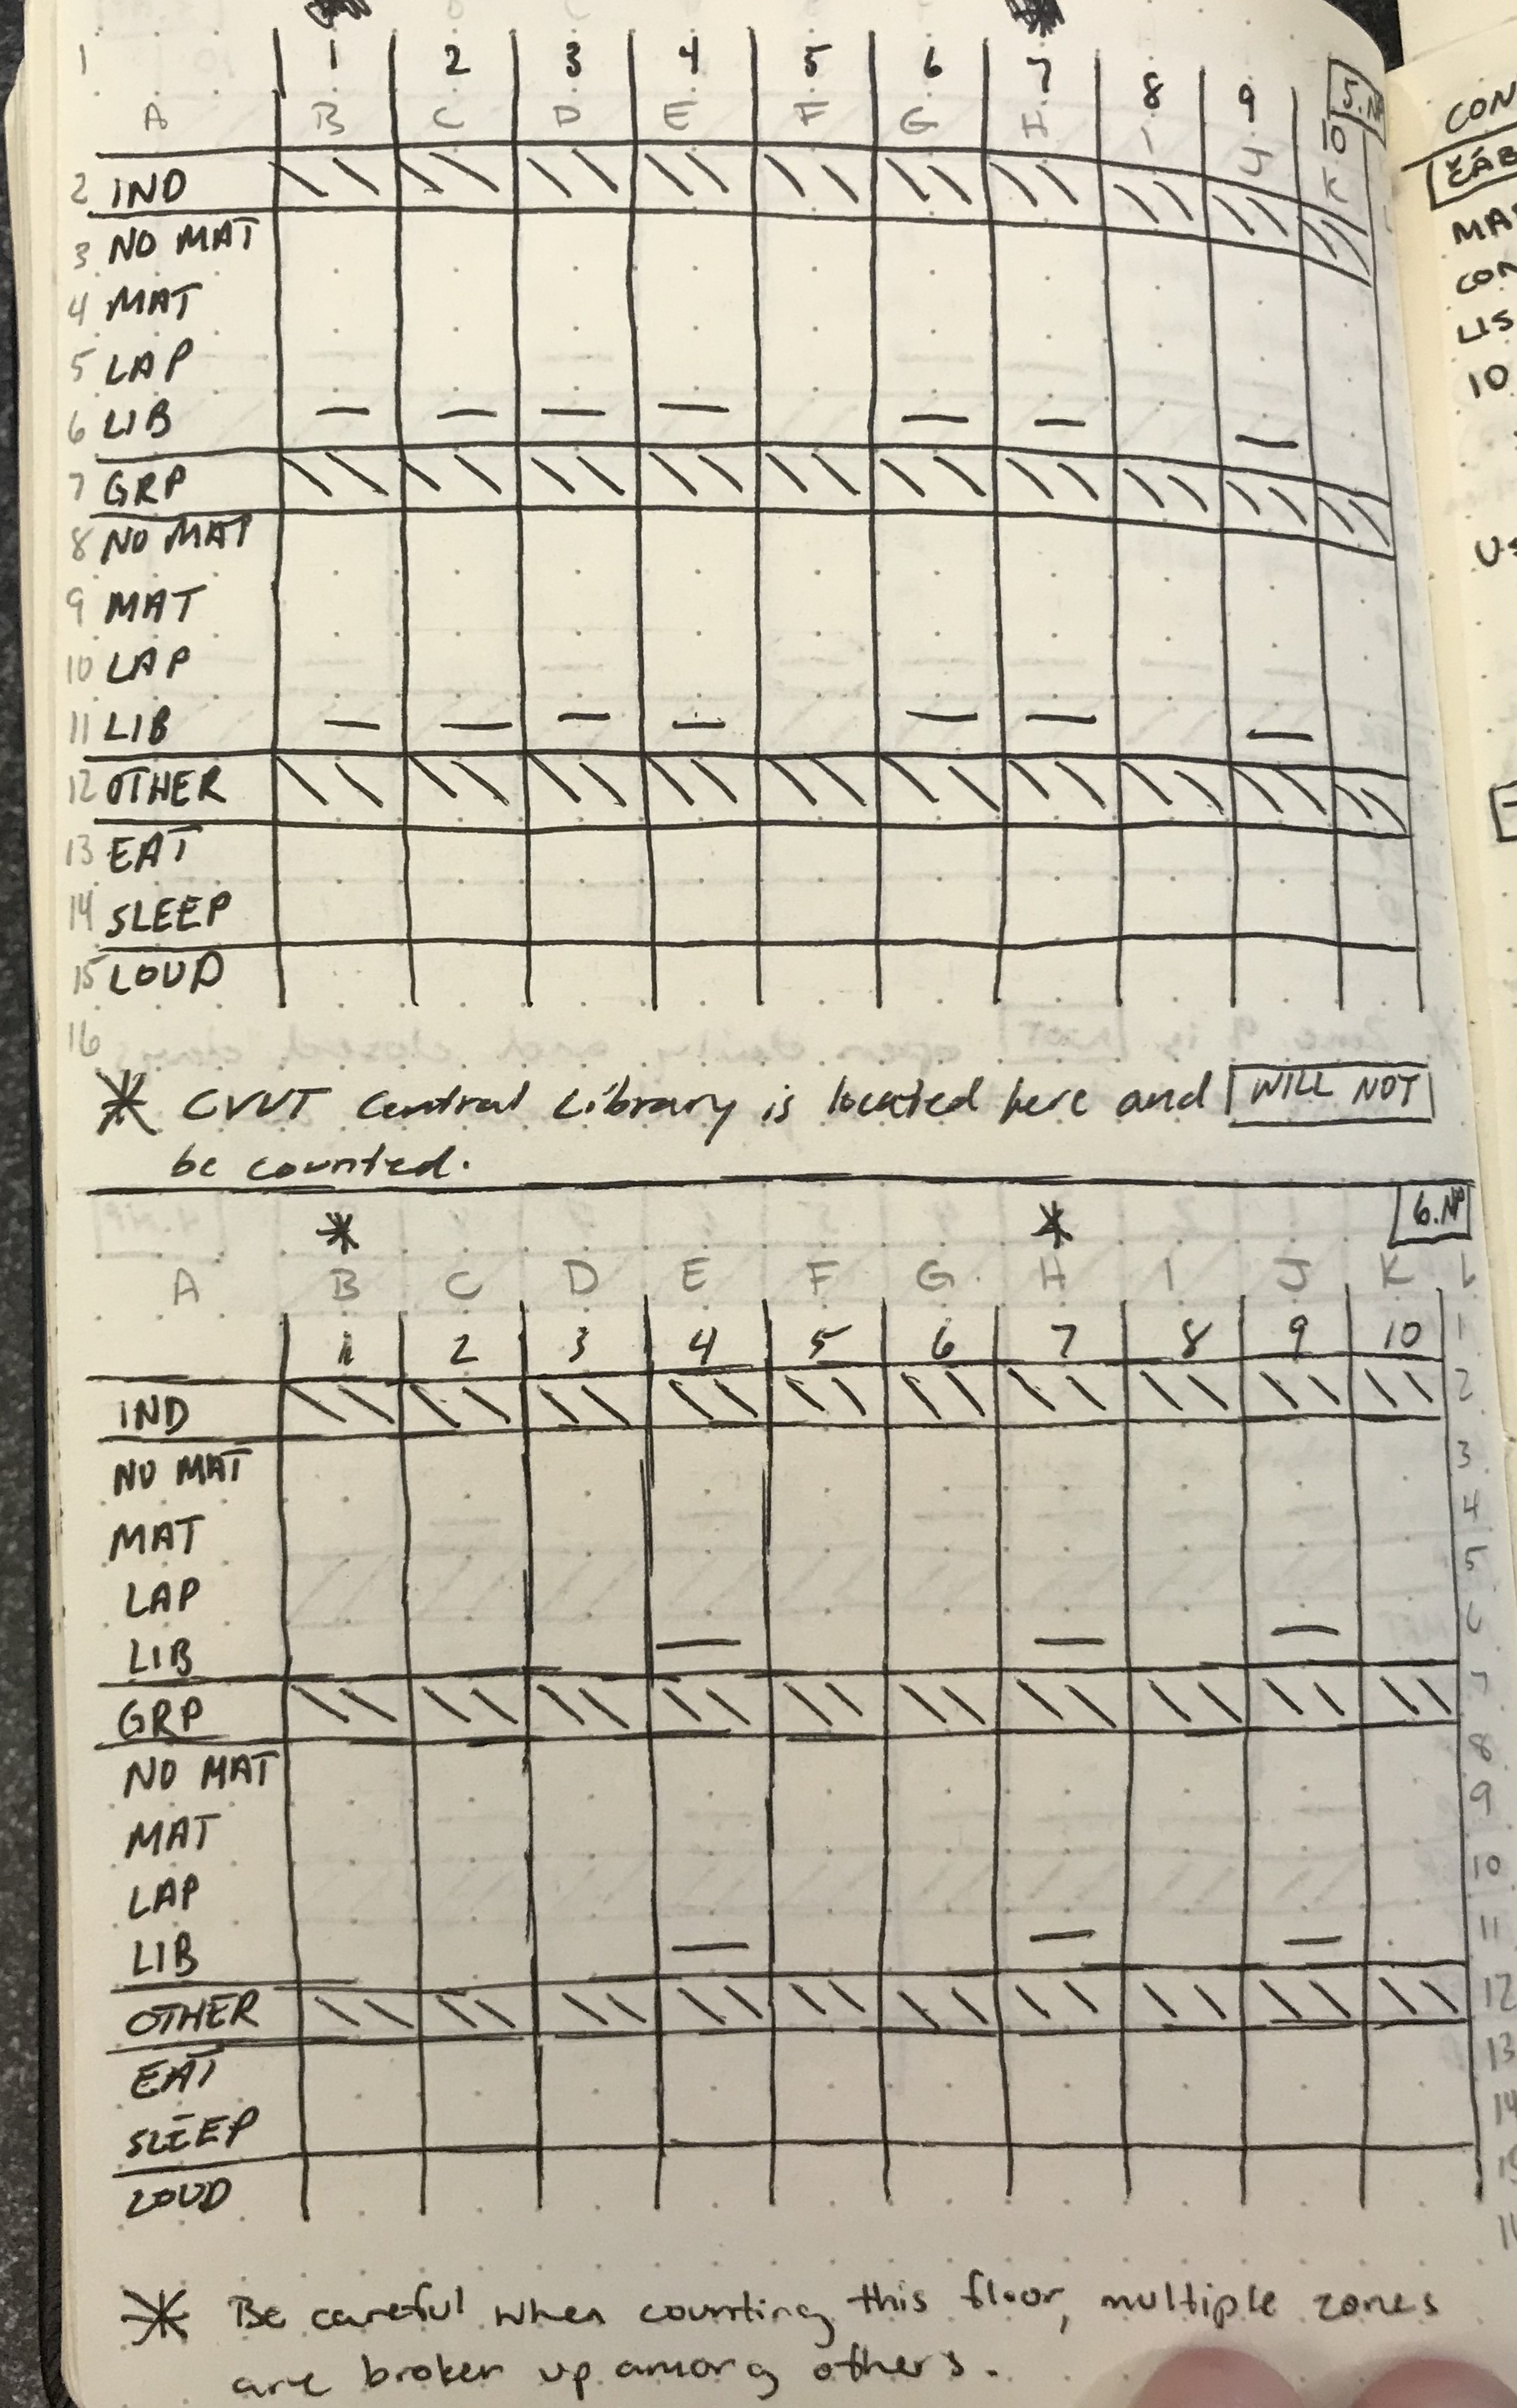 1 1 2 3 4 5 6 7 8 9 10 5.NP
A B C D E F G H I J K L
2 IND
3 NO MAT
4 MAT
5 LAP
6 LIB — — — — — — —
7 GRP
8 NO MAT
9 MAT
10 LAP
11 LIB — — — — — — —
12 OTHER
13 EAT
14 SLEEP
15 LOUD
16
* CVUT Central Library is located here and WILL NOT
be counted.
* * 6.NP
A B C D E F G H I J K L
1 2 3 4 5 6 7 8 9 10 1
IND 2
NO MAT 3
MAT 4
LAP 5
LIB — — — 6
GRP 7
NO MAT 8
MAT 9
LAP 10
LIB — — — 11
OTHER 12
EAT 13
SLEEP 14
LOUD 15
* Be careful when counting this floor, multiple zones
are broken up among others.
CON
MA
CON
LIS
10